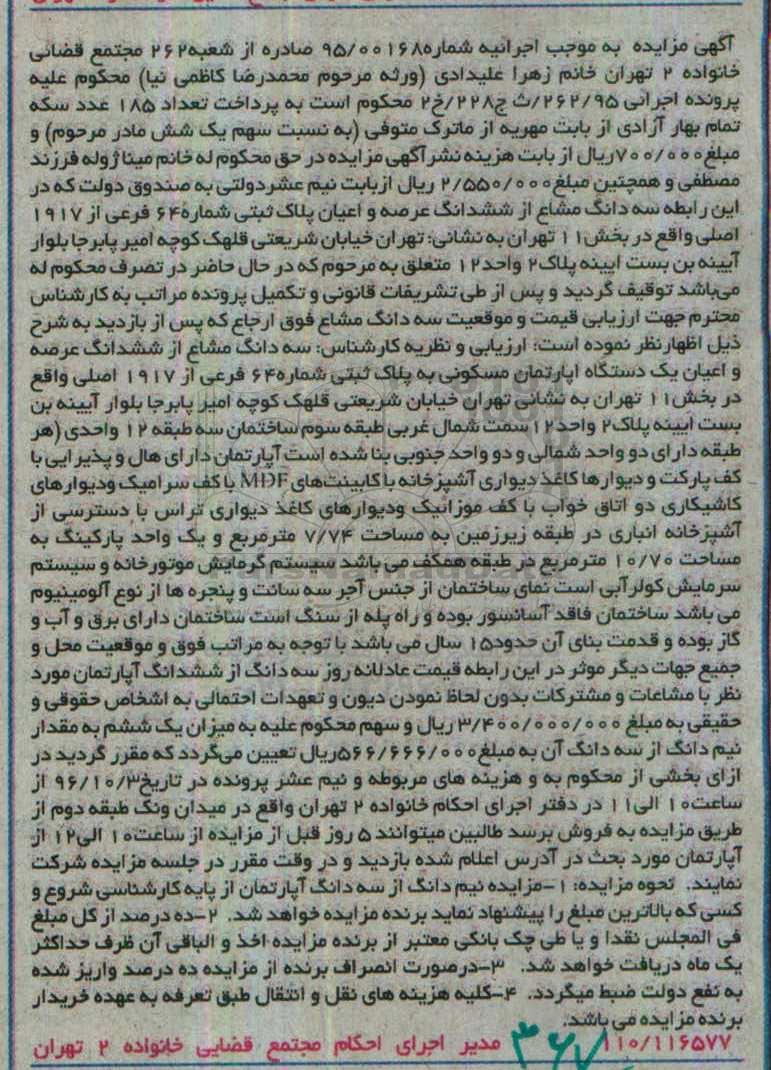 آگهی مزایده به موجب اجرائیه شماره۹۵/۰۰۱۶۸ صادره از شعبه۲۶۲ مجتمع قضائی
خانواده ۲ تهران خانم زهرا علیدادی (ورثه مرحوم محمدرضا کاظمی نیا) محکوم علیه
پرونده اجرائی ۲۶۲/۹۵/ث ج۲۲۸/خ۲ محکوم است به پرداخت تعداد ۱۸۵ عدد سکه
تمام بهار آزادی از بابت مهریه از ماترک متوفی (به نسبت سهم یک شش مادر مرحوم) و
مبلغ۷۰۰/۰۰۰ریال از بابت هزینه نشرآگهی مزایده در حق محکوم له خانم مینا ژوله فرزند
مصطفی و همچنین مبلغ۲/۵۵۰/۰۰۰ ریال ازبابت نیم عشردولتی به صندوق دولت که در
این رابطه سه دانگ مشاع از ششدانگ عرصه و اعیان پلاک ثبتی شماره۶۴ فرعی از ۱۹۱۷
اصلی واقع در بخش۱۱ تهران به نشانی: تهران خیابان شریعتی قلهک کوچه امیر پابرجا بلوار
آیینه بن بست ایینه پلاک۲ واحد۱۲ متعلق به مرحوم که در حال حاضر در تصرف محکوم له
می‌باشد توقیف گردید و پس از طی تشریفات قانونی و تکمیل پرونده مراتب به کارشناس
محترم جهت ارزیابی قیمت و موقعیت سه دانگ مشاع فوق ارجاع که پس از بازدید به شرح
ذیل اظهارنظر نموده است: ارزیابی و نظریه کارشناس: سه دانگ مشاع از ششدانگ عرصه
و اعیان یک دستگاه اپارتمان مسکونی به پلاک ثبتی شماره۶۴ فرعی از ۱۹۱۷ اصلی واقع
در بخش۱۱ تهران به نشانی تهران خیابان شریعتی قلهک کوچه امیر پابرجا بلوار آیینه بن
بست ایینه پلاک۲ واحد۱۲ سمت شمال غربی طبقه سوم ساختمان سه طبقه ۱۲ واحدی (هر
طبقه دارای دو واحد شمالی و دو واحد جنوبی بنا شده است آپارتمان دارای هال و پذیرایی با
کف پارکت و دیوارها کاغذ دیواری آشپزخانه با کابینت‌های MDF با کف سرامیک ودیوارهای
کاشیکاری دو اتاق خواب با کف موزائیک ودیوارهای کاغذ دیواری تراس با دسترسی از
آشپزخانه انباری در طبقه زیرزمین به مساحت ۷/۷۴ مترمربع و یک واحد پارکینگ به
مساحت ۱۰/۷۰ مترمربع در طبقه همکف می باشد سیستم گرمایش موتورخانه و سیستم
سرمایش کولرآبی است نمای ساختمان از جنس آجر سه سانت و پنجره ها از نوع آلومینیوم
می باشد ساختمان فاقد آسانسور بوده و راه پله از سنگ است ساختمان دارای برق و آب و
گاز بوده و قدمت بنای آن حدود۱۵ سال می باشد با توجه به مراتب فوق و موقعیت محل و
جمیع جهات دیگر موثر در این رابطه قیمت عادلانه روز سه دانگ از ششدانگ آپارتمان مورد
نظر با مشاعات و مشترکات بدون لحاظ نمودن دیون و تعهدات احتمالی به اشخاص حقوقی و
حقیقی به مبلغ ۳/۴۰۰/۰۰۰/۰۰۰ ریال و سهم محکوم علیه به میزان یک ششم به مقدار
نیم دانگ از سه دانگ آن به مبلغ۵۶۶/۶۶۶/۰۰۰ریال تعیین می‌گردد که مقرر گردید در
ازای بخشی از محکوم به و هزینه های مربوطه و نیم عشر پرونده در تاریخ۹۶/۱۰/۳ از
ساعت۱۰ الی۱۱ در دفتر اجرای احکام خانواده ۲ تهران واقع در میدان ونک طبقه دوم از
طریق مزایده به فروش برسد طالبین میتوانند ۵ روز قبل از مزایده از ساعت۱۰ الی۱۲ از
آپارتمان مورد بحث در آدرس اعلام شده بازدید و در وقت مقرر در جلسه مزایده شرکت
نمایند. نحوه مزایده: ۱-مزایده نیم دانگ از سه دانگ آپارتمان از پایه کارشناسی شروع و
کسی که بالاترین مبلغ را پیشنهاد نماید برنده مزایده خواهد شد. ۲-ده درصد از کل مبلغ
فی المجلس نقدا و یا طی چک بانکی معتبر از برنده مزایده اخذ و الباقی آن ظرف حداکثر
یک ماه دریافت خواهد شد. ۳-درصورت انصراف برنده از مزایده ده درصد واریز شده
به نفع دولت ضبط میگردد. ۴-کلیه هزینه های نقل و انتقال طبق تعرفه به عهده خریدار
برنده مزایده می باشد.
۱۱۰/۱۱۶۵۷۷ ۳۶۷ مدیر اجرای احکام مجتمع قضایی خانواده ۲ تهران